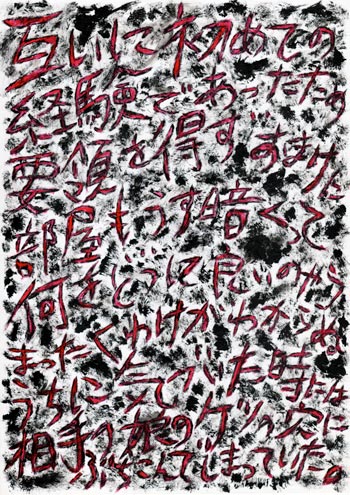 互いに初めての
経験であったため
要領を得ず おまけに
部屋もうす暗くって
何をどうに良いのやら
まったくわけがわからぬ
うちに気がついた時には
相手の娘のケツの穴に
しまっていた